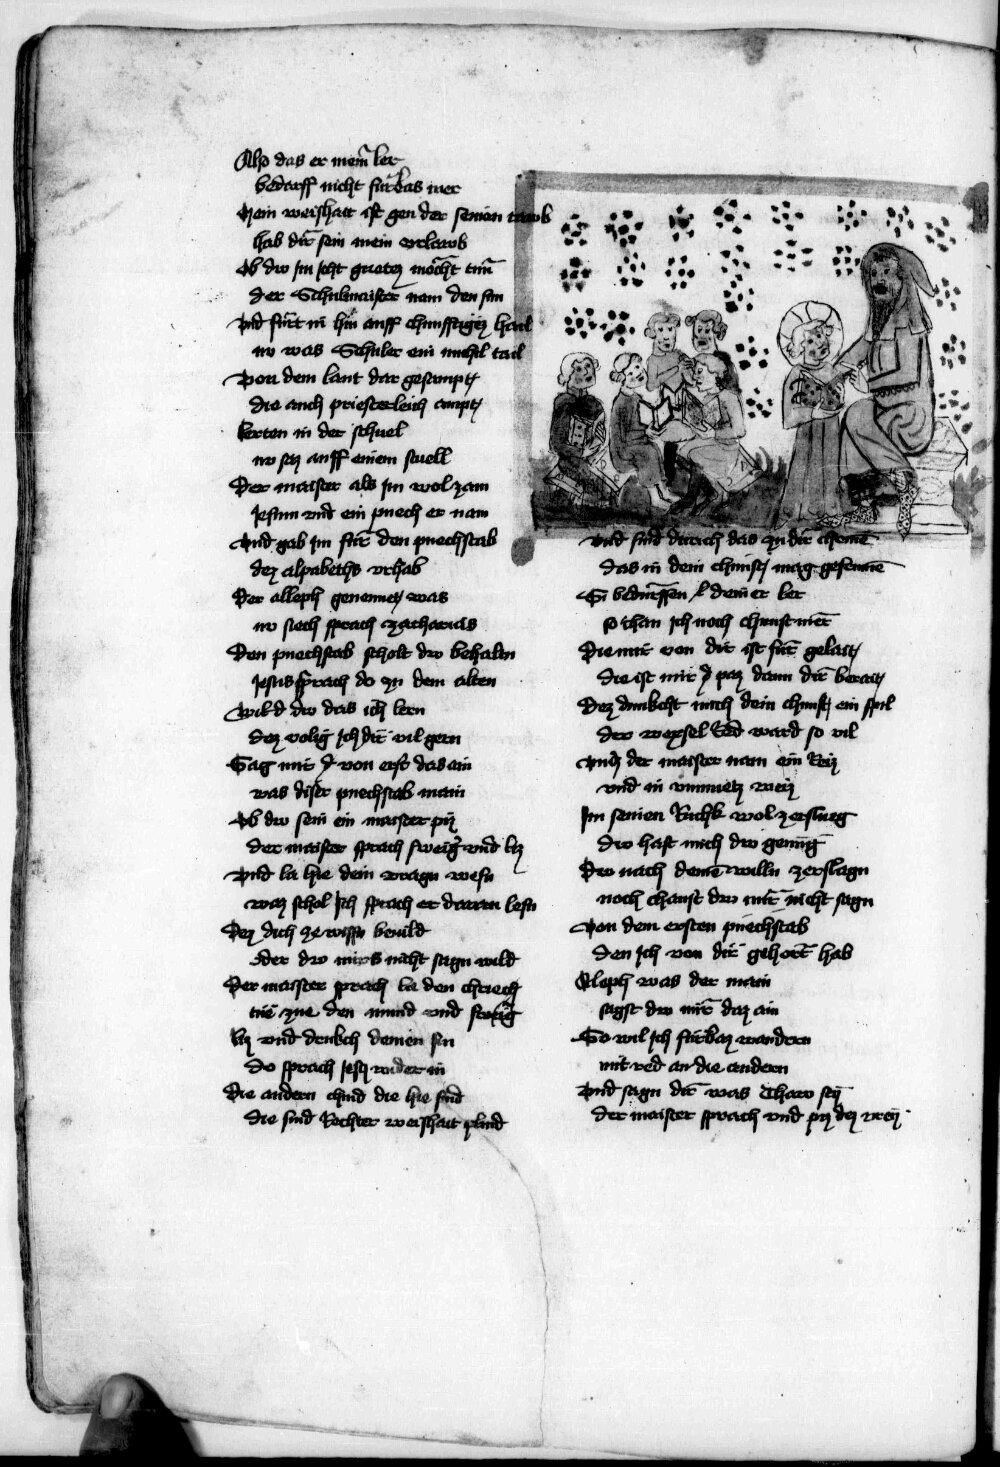 Also das er meiner ler
bedarff nicht fürbas mer
Mein weishait ist gen der seinen taub
hab dir sein mein vrlaub
Ob du im icht gutez möcht tun
der Schulmaister nam den sun
Vnd fürt in hin auff chunfftigez hail
nu was Schuler ein michil tail
Von dem lant dar gesampt
die auch priesterleich ampt
lerten in der schuel
nu saz auff einem stuell
Der maister als im wol zam
Jesum vnd ein puech er nam
Vnd gab im für den puechstab
dez alpabeths vrhab
Der alleph genennet was
nu siech sprach zacharias
Den puechstab scholt du behalten
Jesus sprach do zu dem alten
Wild du das ich lern
dez volig ich dir vil gern
Sag mir von erst das ain
was diser puechstab main
Ob du sein ein maister pist
der maister sprach sweig vnd liz
Vnd la hie dein vragn wesn
waz schol ich sprach er daran lesn
Dez dich ze wissn beuild
oder du mirs nicht sagn wild
Der maister sprach la den chriech
tue zue den mund vnd sweig
liz vnd denkch deinen sin
do sprach jesus wider in
Die andern chind die hie sind
die sind Rechter weishait plind
Vnd sind darum das zu dir chomen
das in dein chunst mag gefromen
Si bedürffen deiner ler
so chan ich noch chunst mer
Die mir von dir ist für gelait
die ist mir paz dann dir berait
Dez dunkcht mich dein chunst ein spil
der wexsel Red ward so vil
Vntz der maister nam ein Reiz
vnd in vnmuetz weiz
Im seinen Rukk wol zerslueg
du hast mich du genueg
Du nach deinem willn zerslagn
noch chanst du mir nicht sagn
Von dem ersten puechstab
den ich von dir gehort hab
Aleph was der main
sagst du mir daz ain
So wil ich fürbaz wandern
mit red an die andern
Vnd sagn dir was Thaw sey
der maister sprach vnd pis dez vrey